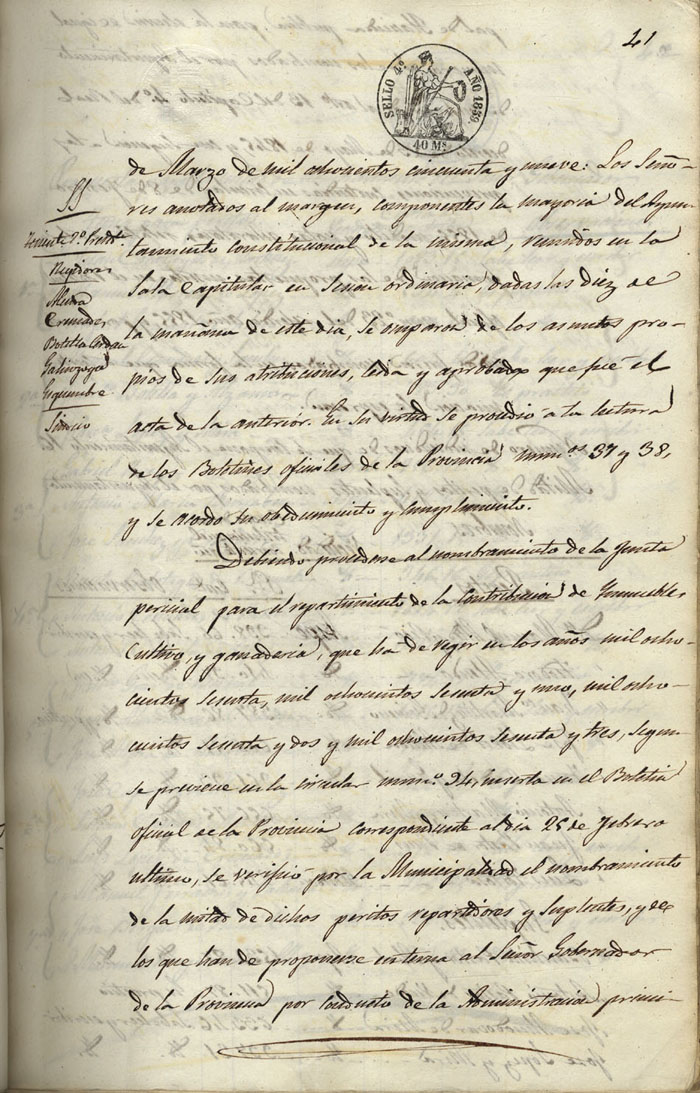 41
SELLO 4º AÑO 1859.
40 Ms.
SS
Teniente 2º Presdte.
Regidores
Mira
Cremades
Botella
Galinsoga
Sequembre
Síndico
de Marzo de mil ochocientos cincuenta y nueve: Los Seño-
res anotados al margen, componentes la mayoria del Ayun-
tamiento constitucional de la misma, reunidos en la
Sala Capitular en Sesion ordinaria, dadas las diez de
la mañana de este dia, se ocuparon de los asuntos pro-
pios de sus atribuciones, leida y aprobada que fué el
acta de la anterior. En su virtud se procedió a la lectura
de los Boletines oficiales de la Provincia num.os 37 y 38,
y se acordó su obedecimiento y cumplimiento.
Debiendo procederse al nombramiento de la Junta
pericial para el repartimiento de la Contribucion de Inmuebles
Cultivo, y ganaderia, que ha de regir en los años mil ocho-
cientos sesenta, mil ochocientos sesenta y uno, mil ocho-
cientos sesenta y dos y mil ochocientos sesenta y tres, segun
se previene en la circular num.º 94, inserta en el Boletin
oficial de la Provincia correspondiente al dia 25 de Febrero
ultimo, se verificó por la Municipalidad el nombramiento
de la mitad de dichos peritos repartidores y suplentes, y de
los que han de proponerse en terna al Señor Gobernador
de la Provincia por conducto de la Administracion princi-